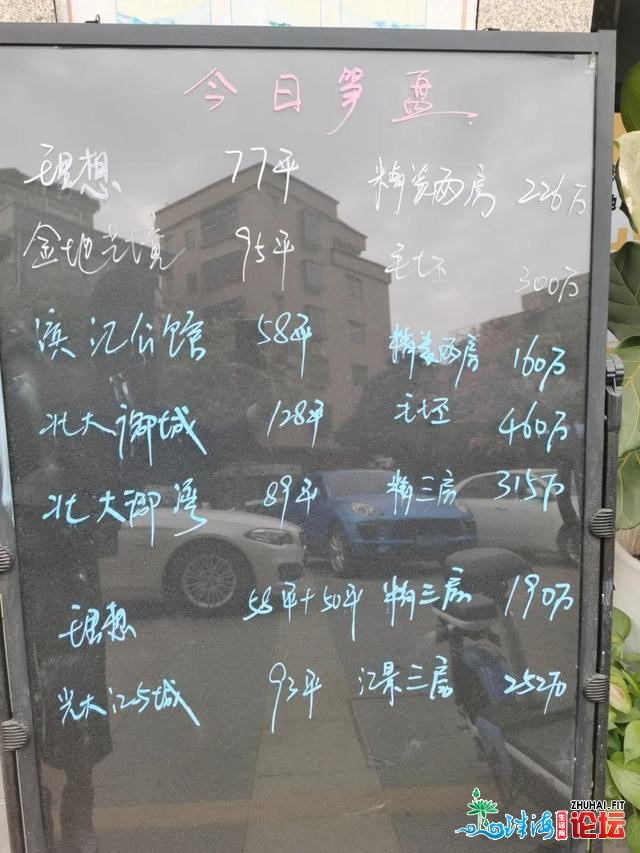 今日笋盘
理想 77平 精装两房 226万
金地 95平 毛坯 300万
滨江公馆 58平 精装两房 160万
北大御城 128平 毛坯 460万
北大御湾 89平 精三房 315万
理想 58平+50平 精三房 190万
光大江与城 93平 江景三房 252万
ZHUHAI.FIT
珠海 生活网 论坛